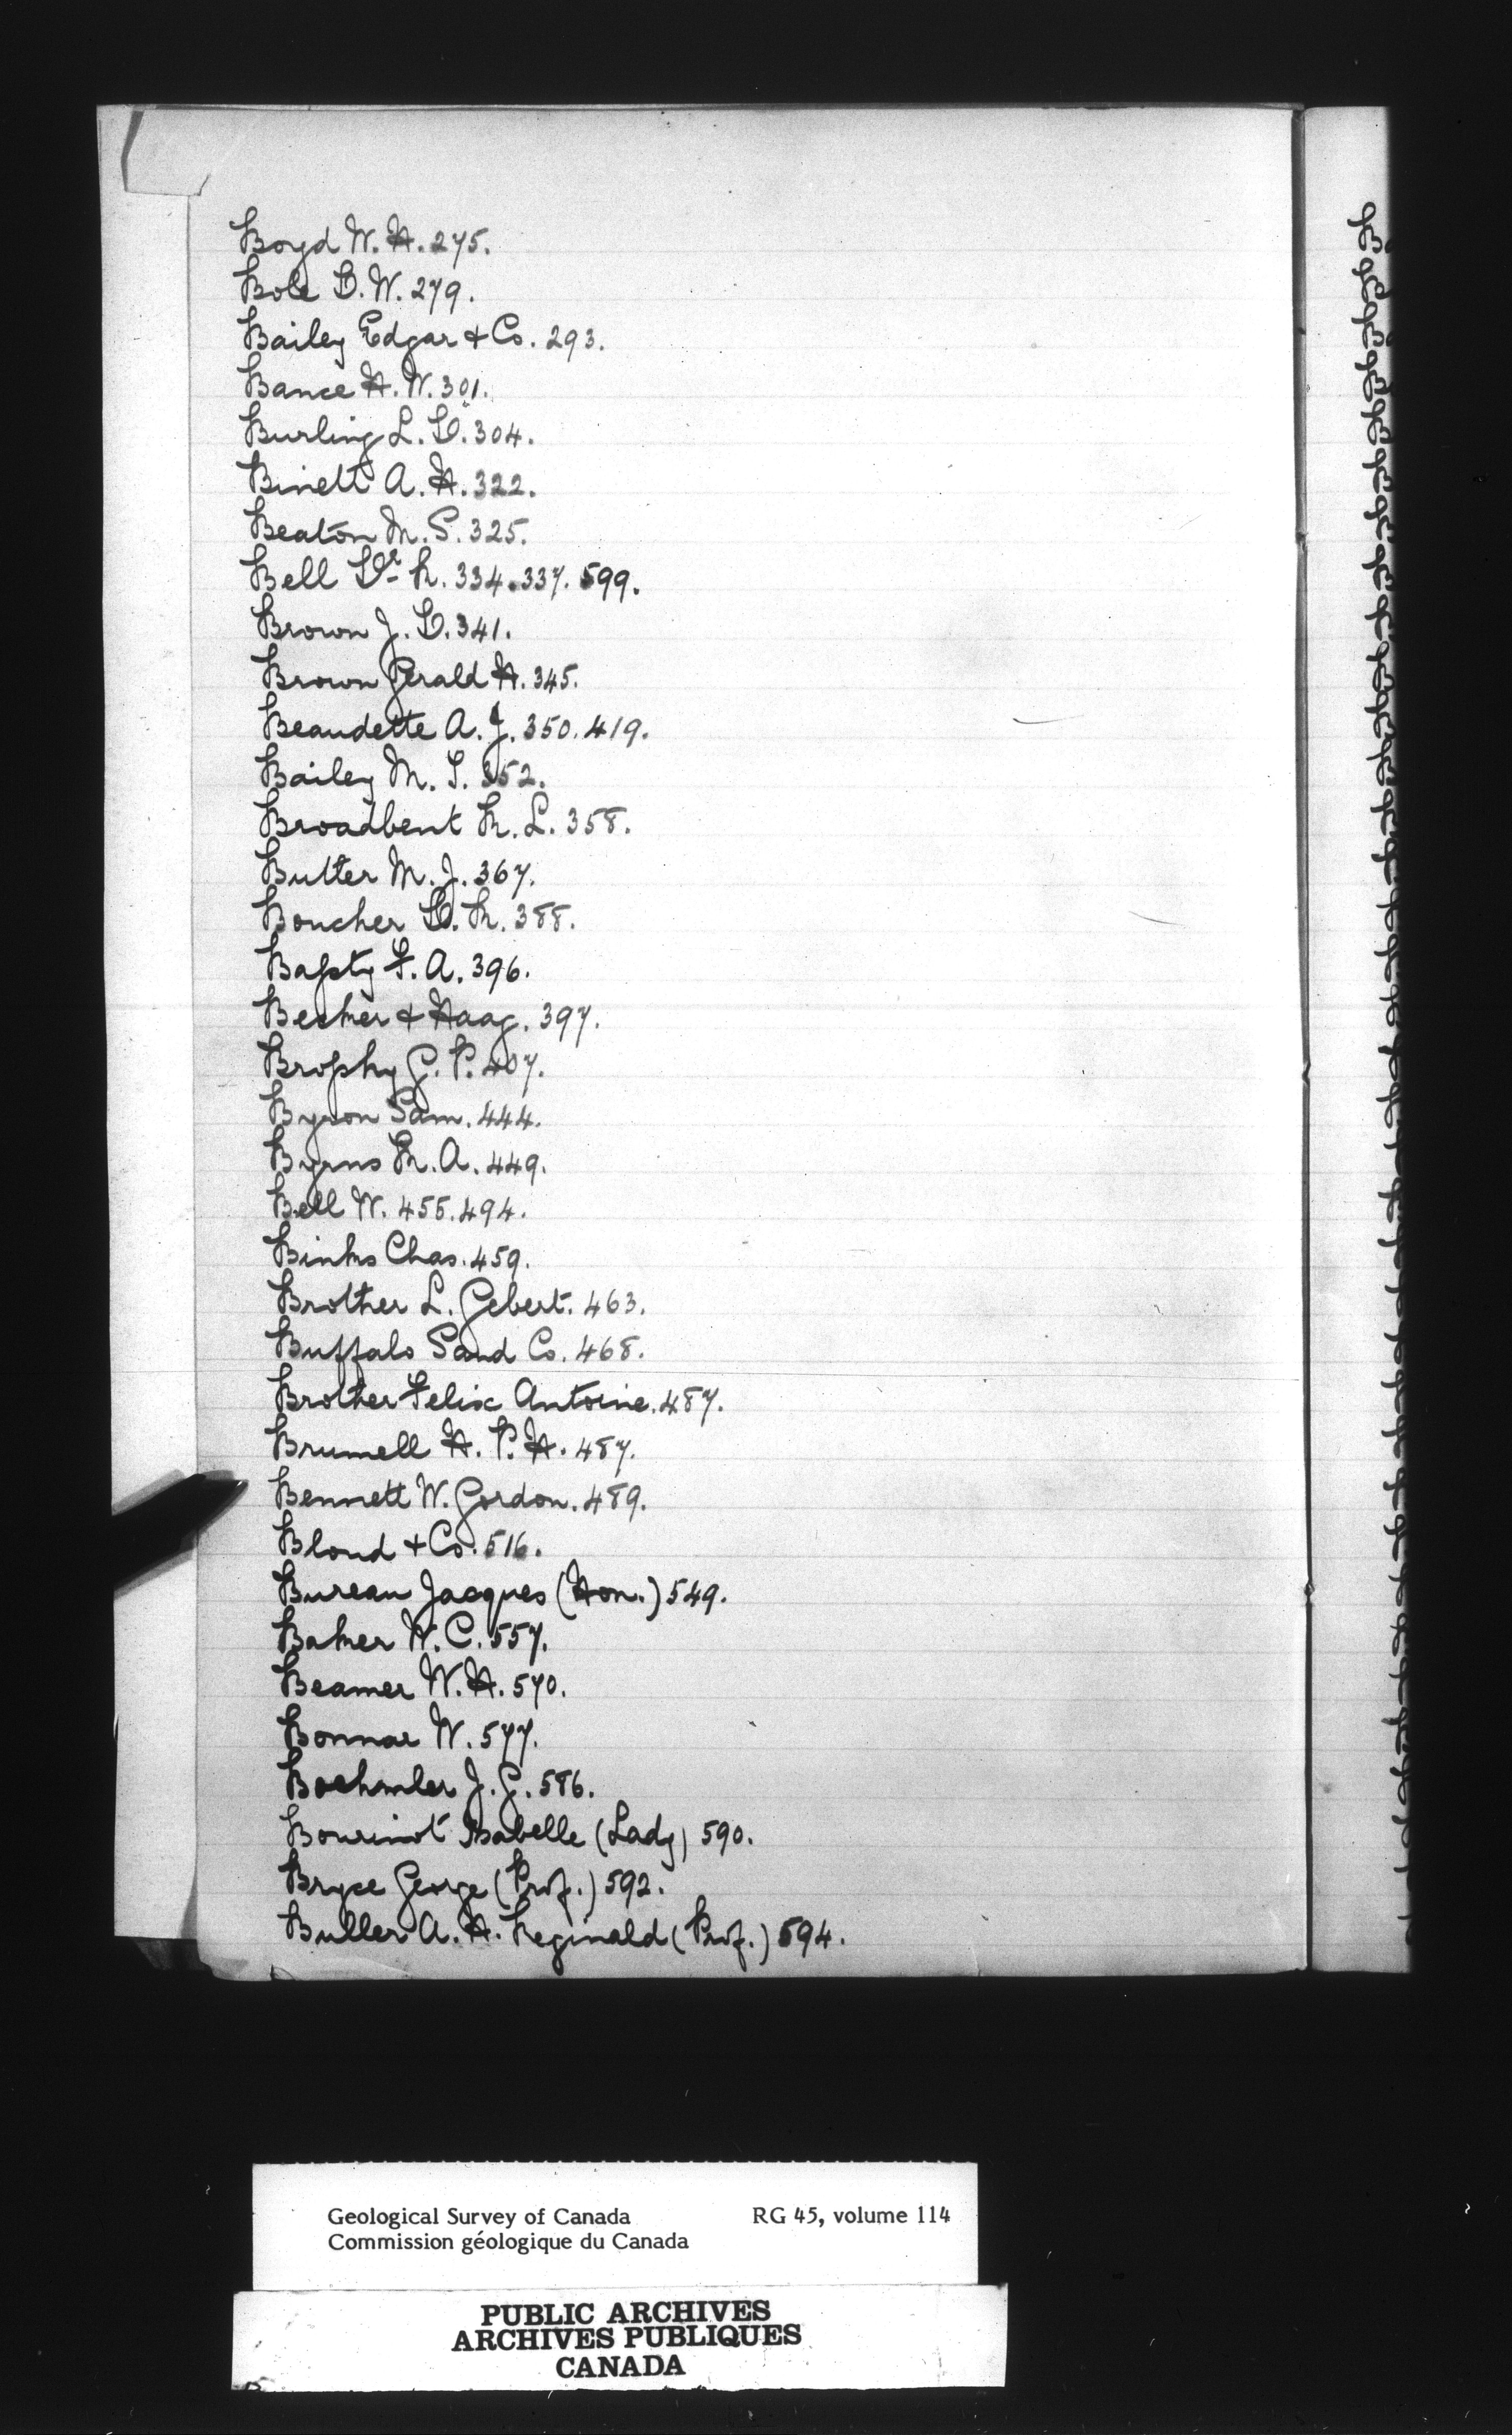 Boyd W. H. 275.
Bole D. W. 279.
Bailey Edgar & Co. 293.
Bance H. W. 301.
Burling L. D. 304.
Binett A. H. 322.
Beaton M. S. 325.
Bell Dr. R. 334. 337. 599.
Brown J. D. 341.
Brown Gerald H. 345.
Beaudette A. J. 350. 419.
Bailey M. S. 352.
Broadbent R. L. 358.
Butler M. J. 367.
Boucher D. R. 388.
Bapty F. A. 396.
Becker & Haag. 397.
Brophy G. P. 407.
Byron Sam. 444.
Byrns R. A. 449.
Bell W. 455. 494.
Binks Chas. 459.
Brother L. Gebert. 463.
Buffalo Sand Co. 468.
Brother Felix Antoine. 487.
Brumell H. P. H. 487.
Bennett W. Gordon. 489.
Bloud & Co. 516.
Bureau Jacques (Hon.) 549.
Baker W. C. 557.
Beamer W. H. 570.
Bonnar W. 577.
J. G. 586.
Bourinot Isabelle (Lady) 590.
Bryce George (Prof.) 592.
Buller A. H. Reginald (Prof.) 594.
Geological Survey of Canada RG 45, volume 114
Commission géologique du Canada
PUBLIC ARCHIVES
ARCHIVES PUBLIQUES
CANADA